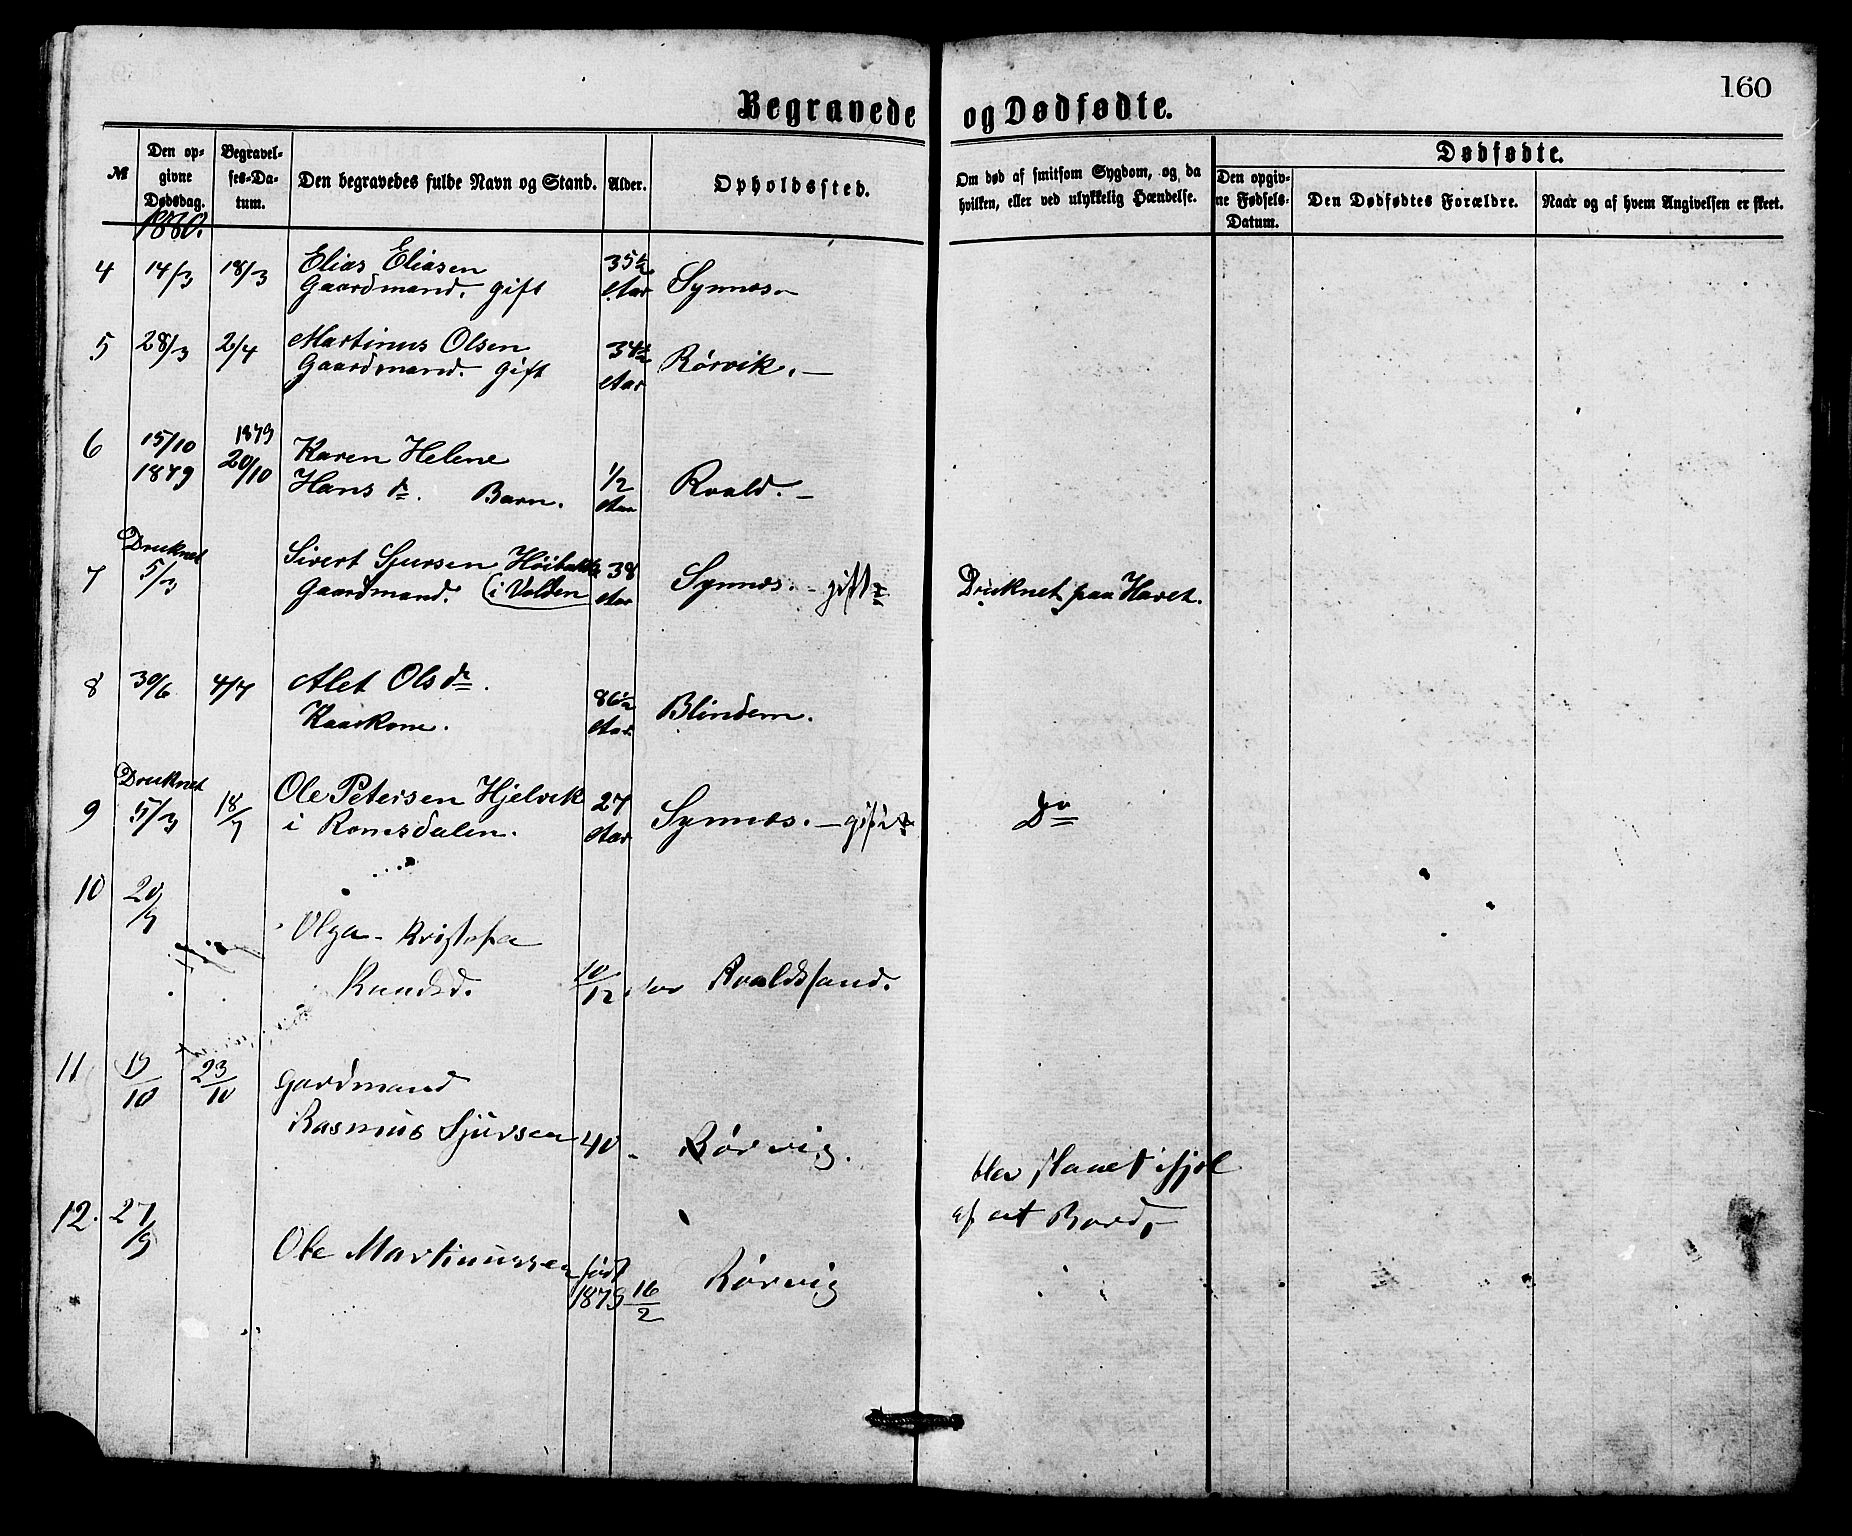 160
Begravede og Dødfødte.
№
Den opgivne Dødsdag.
Begravelses-Datum.
Den begravedes fulde Navn og Stand.
Alder.
Opholdssted.
Om død af smitsom Sygdom, og da hvilken, eller ved ulykkelig Hændelse.
Dødfødte.
Den opgivne Fødsels-Datum.
Den Dødfødtes Forældre.
Naar og af hvem Angivelsen er skeet.
1880.
4 14/3 18/3 Elias Eliasen 35½
Gaardmand. gift Aar Synnæs —
5 28/3 2/4 Martinus Olsen 34½
Gaardmand. gift Aar Rørvik. —
6 15/10 1879 Karen Helene
1879 20/10 Hans dr. Barn. ½ Aar Roald. —
Druknet
7 5/3 Sivert Sjursen 38
Gaardmand. (i Volden Aar Synnæs. - gift Druknet paa Havet.
8 30/6 4/7 Alet Ols dr. 86½
Kaarkone. Aar Blindem.
Druknet
9 5/3 18/7 Ole Petersen Hjelvik 27
i Romsdalen. Aar Synnæs. — gift Do
10 20/9 Olga Kristofa
Knudsd. 10/12 Aar Roaldsand.
11 19/10 23/10 Gardmand
Rasmus Sjursen 40 - Rørvig.
blev slaaet ihjel
af et Bord,
12. 27/9 Ole Martinussen født
1879 16/2 Rørvig